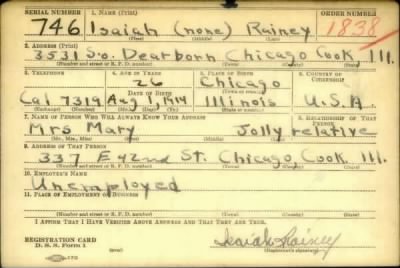 SERIAL NUMBER 1. NAME (Print) ORDER NUMBER
746 Isaiah (none) Rainey 1838
(First) (Middle) (Last)
2. ADDRESS (Print)
3531 So. Dearborn Chicago Cook Ill.
(Number and street or R. F. D. number) (Town) (County) (State)
3. TELEPHONE 4. AGE IN YEARS 5. PLACE OF BIRTH 6. COUNTRY OF CITIZENSHIP
26 Chicago
Cal 7319 Aug 1, 1914 Illinois U.S.A
7. NAME OF PERSON WHO WILL ALWAYS KNOW YOUR ADDRESS 8. RELATIONSHIP OF THAT PERSON
Mrs Mary Jolly relative
(Mr., Mrs., Miss) (First) (Middle) (Last)
9. ADDRESS OF THAT PERSON
337 E 42nd St. Chicago, Cook. Ill.
(Number and street or R. F. D. number) (Town) (County) (State)
10. EMPLOYER'S NAME
Unemployed
11. PLACE OF EMPLOYMENT OR BUSINESS
(Number and street or R. F. D. number) (Town) (County) (State)
I AFFIRM THAT I HAVE VERIFIED ABOVE ANSWERS AND THAT THEY ARE TRUE.
REGISTRATION CARD
D. S. S. Form 1 Isaiah Rainey
(Registrant's signature)